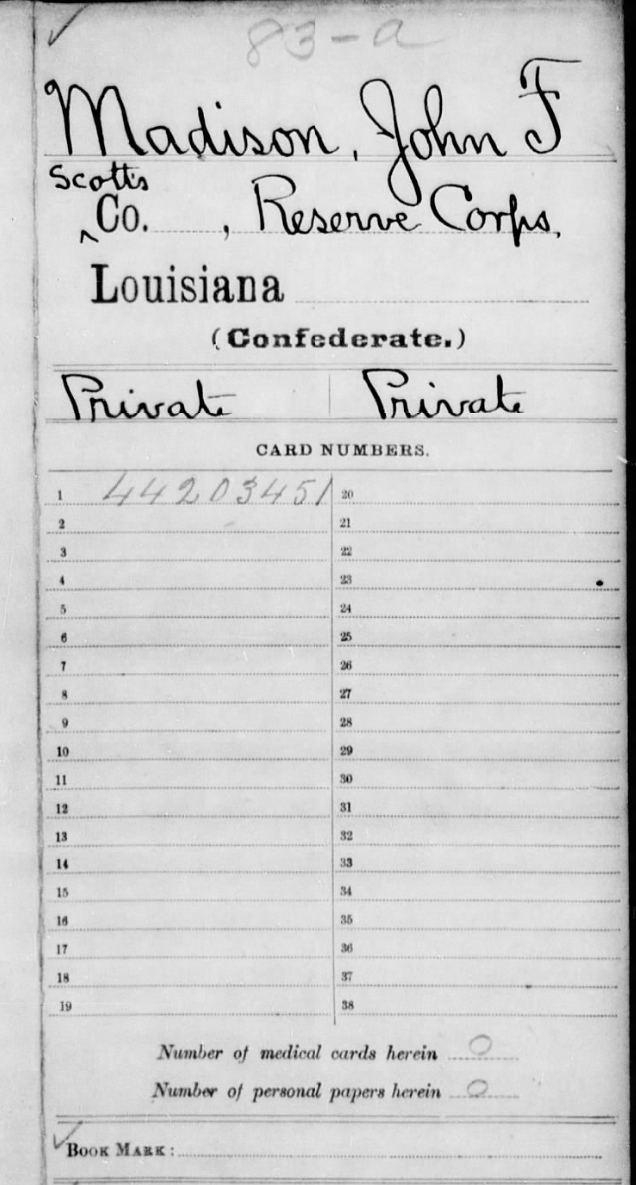 83-a
Madison, John F
Scott's
Co. , Reserve Corps,
Louisiana
(Confederate.)
Private Private
CARD NUMBERS.
1 44203451 20
2 21
3 22
4 23
5 24
6 25
7 26
8 27
9 28
10 29
11 30
12 31
13 32
14 33
15 34
16 35
17 36
18 37
19 38
Number of medical cards herein 0
Number of personal papers herein 0
BOOK MARK: